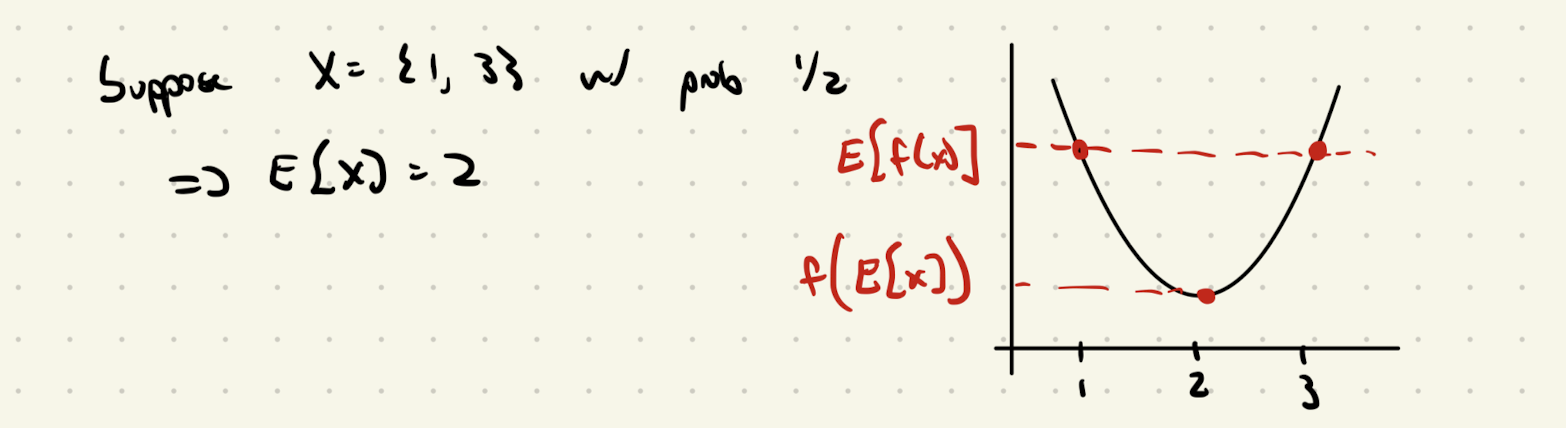 Suppose X = {1, 3} w/ prob 1/2
=> E[X] = 2
E[f(x)]
f(E[x])
1 2 3